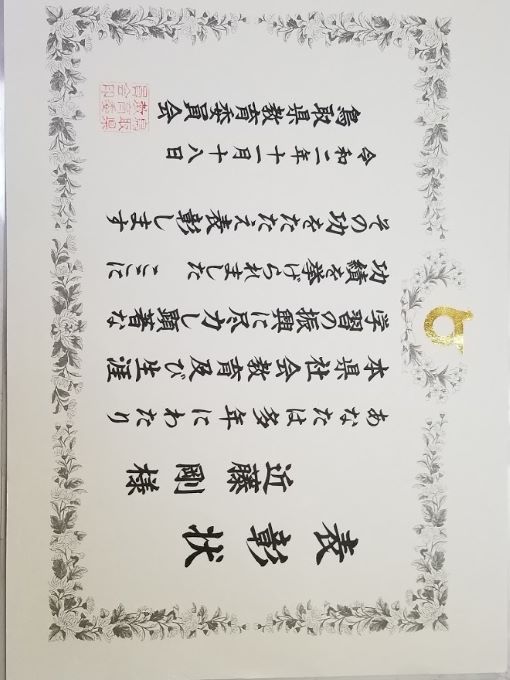 表彰状
近藤 剛 様
あなたは多年にわたり
本県社会教育及び生涯
学習の振興に尽力し顕著な
功績を挙げられました ここに
その功をたたえ表彰します
令和二年十一月十八日
鳥取県教育委員会
鳥取県
教育委
員会印